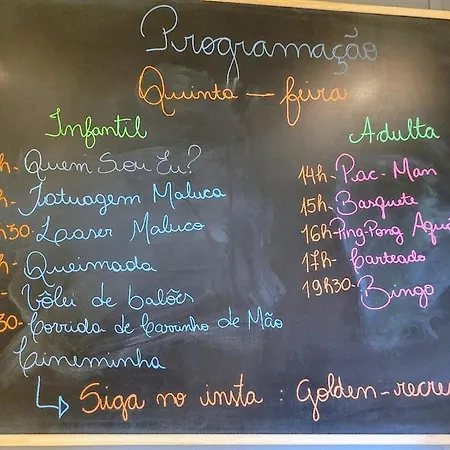 Programação
Quinta - feira
Infantil
h- Quem Sou Eu?
- Tatuagem Maluca
h30- Laaser Maluco
h- Queimada
- Vôlei de balões
30- Corrida de Carrinho de Mão
Cineminha
Adulta
14h- Pac-Man
15h- Basquete
16h- Ping-Pong Aquá
17h- Carteado
19h30- Bingo
↳ Siga no insta : Golden-recre